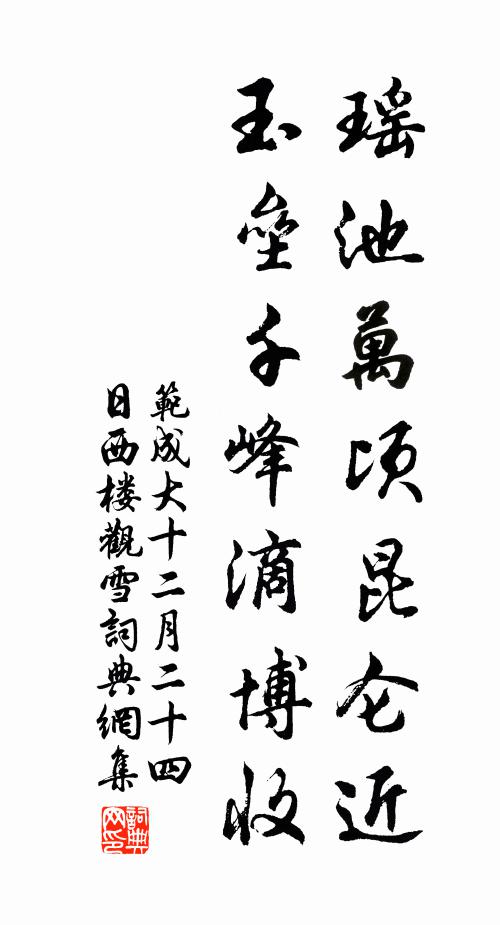 瑶池萬頃昆仑近
玉壘千峰滴博收
範成大十二月二十四
日西楼觀雪詞典網集
詞典
网印